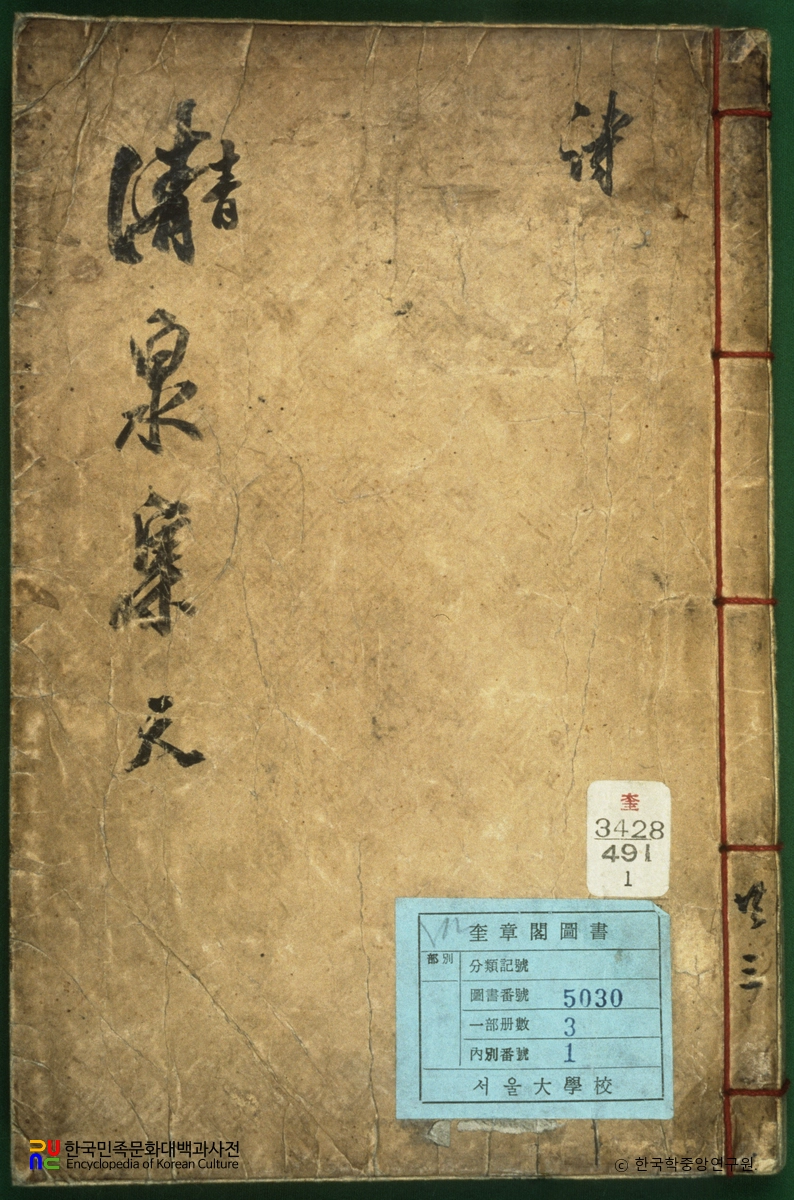 詩
清泉集 天
青
共三
奎
3428
491
1
奎章閣圖書
部別
分類記號
圖書番號 5030
一部册數 3
內別番號 1
서울大學校
한국민족문화대백과사전
Encyclopedia of Korean Culture
© 한국학중앙연구원